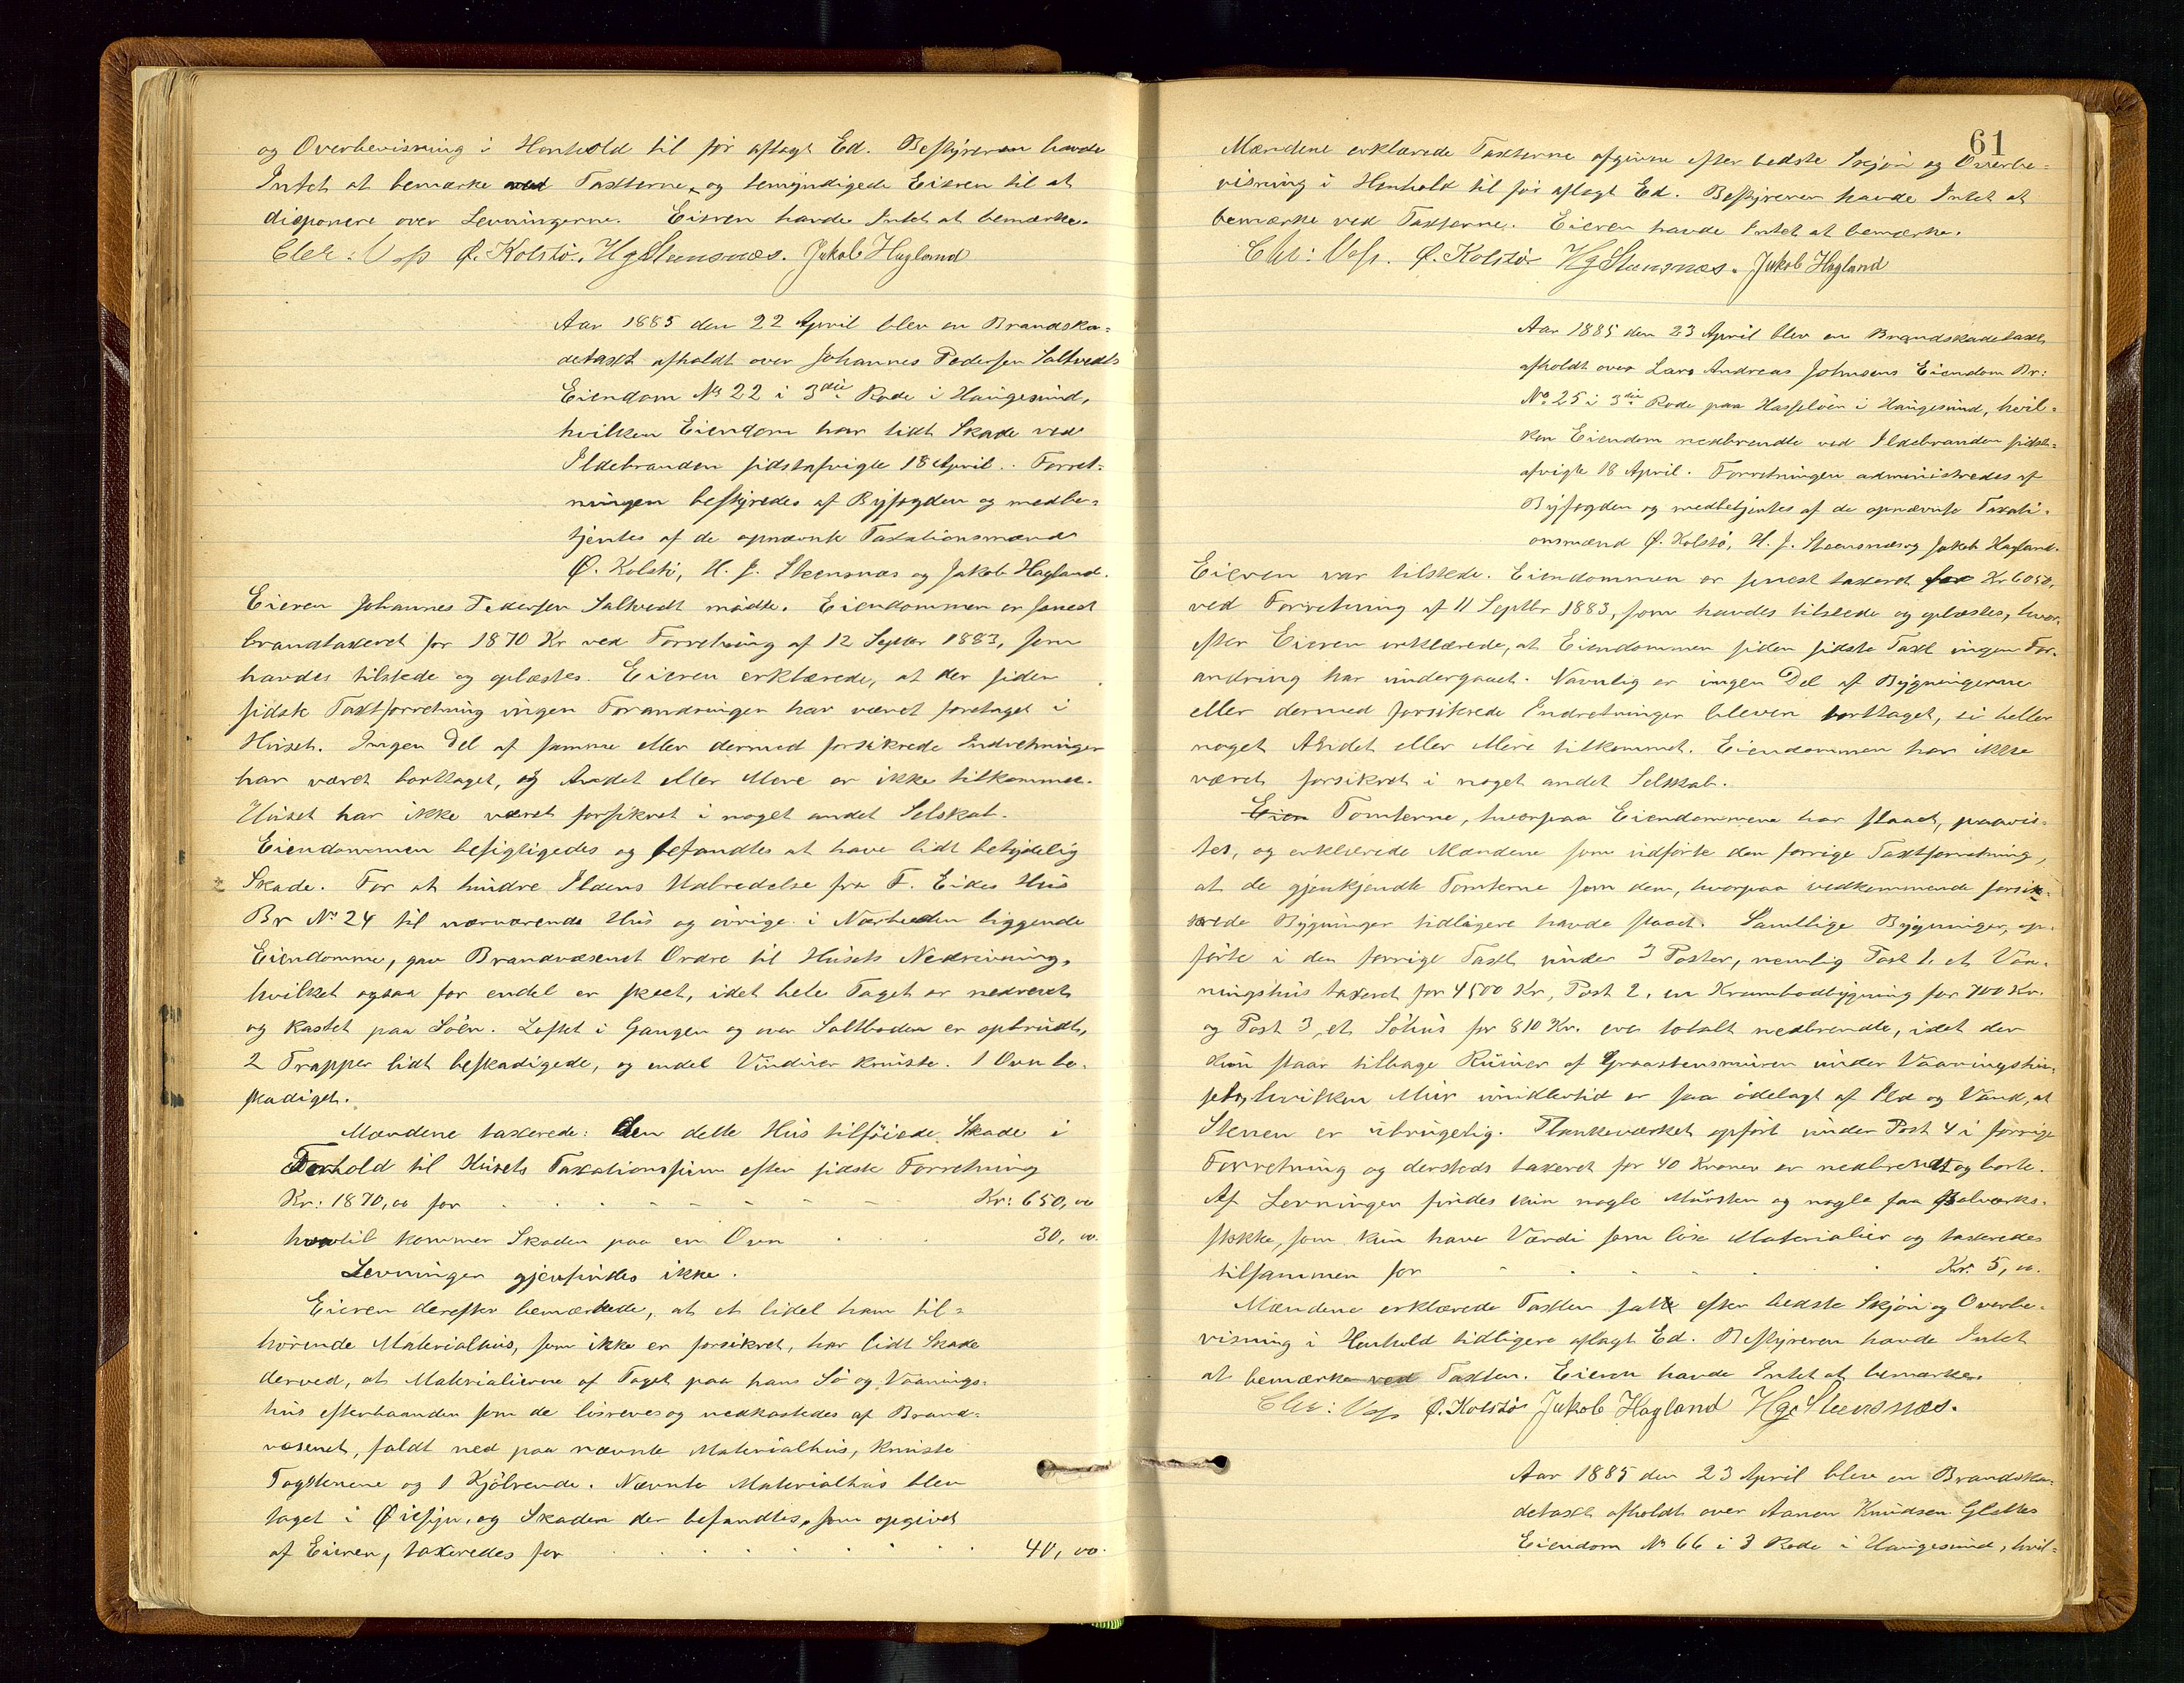 og Overbevisning i Henhold til før aflagt Ed. Bestyreren havde
Intet at bemærke ved Taxterne, og bemyndigede Eieren til at
disponere over Levningerne. Eieren havde Intet at bemærke.
Chr: Ø. Kolstø. HgSteensnæs. Jakob Hagland
Aar 1885 den 22 April blev en Brandska-
detaxt afholdt over Johannes Pedersen Saltvedts
Eiendom № 22 i 3die Rode i Haugesund,
hvilken Eiendom har lidt Skade ved
Ildebranden sidstafvigte 18 April. Forret-
ningen bestyredes af Byfogden og medbe-
tjentes af de opnævnte Taxationsmænd
Ø. Kolstø, H. J. Steensnæs og Jakob Hagland.
Eieren Johannes Pedersen Saltvedt mødte. Eiendommen er senest
brandtaxeret for 1870 Kr ved Forretning af 12 Septbr 1883, som
havdes tilstede og oplæstes. Eieren erklærede, at der siden
sidste Taxtforretning ingen Forandringer har været foretaget i
Huset. Ingen Del af samme eller dermed forsikrede Indretninger
har været borttaget, og Andet eller Mere er ikke tilkommet.
Huset har ikke været forsikret i noget andet Selskab.
Eiendommen besigtigedes og befandtes at have lidt betydelig
Skade. For at hindre Ildens Udbredelse fra F. Eides Hus
Br № 24 til nærværende Hus og øvrige i Nærheden liggende
Eiendomme, gav Brandvæsenet Ordre til Husets Nedrivning,
hvilket ogsaa for endel er skeet, idet hele Taget er nedrevet
og kastet paa Søen. Loftet i Gangen og over Saltboden er opbrudt,
2 Trapper lidt beskadigede, og endel Vinduer knuste. 1 Ovn be-
skadiget.
Mændene taxerede: Den dette Hus tilføiede Skade i
Forhold til Husets Taxationssum efter sidste Forretning
Kr: 1870,00 for Kr: 650,00
hvortil kommer Skaden paa en Ovn 30,00.
Levninger gjenfindes ikke.
Eieren derefter bemærkede, at et lidet ham til-
hørende Materialhus, som ikke er forsikret, har lidt Skade
derved, at Materialierne af Taget paa hans Sø og Vaanings-
hus efterhaanden som de løsreves og nedkastedes af Brand-
væsenet, faldt ned paa nævnte Materialhus, knuste
Tagstenene og 1 Kjølrende. Nævnte Materialhus blev
taget i Øiesyn, og Skaden der befandtes, som opgivet
af Eieren, taxeredes for 40,00.
61
Mændene erklærede Taxterne afgivne efter bedste Skjøn og Overbe-
visning i Henhold til før aflagt Ed. Bestyreren havde Intet at
bemærke ved Taxterne. Eieren havde Intet at bemærke.
Chr: Ø. Kolstø HgSteensnæs. Jakob Hagland
Aar 1885 den 23 April blev en Brandskadetaxt
afholdt over Lars Andreas Johnsens Eiendom Br:
№ 25 i 3die Rode paa Hasseløen i Haugesund, hvil-
ken Eiendom nedbrendte ved Ildebranden sidst-
afvigte 18 April. Forretningen administredes af
Byfogden og medbetjentes af de opnævnte Taxati-
onsmænd Ø. Kolstø, H. J. Steensnæs og Jakob Hagland.
Eieren var tilstede. Eiendommen er senest taxeret for Kr 6050,
ved Forretning af 11 Septbr 1883, som havdes tilstede og oplæstes, hvor-
efter Eieren erklærede, at Eiendommen siden sidste Taxt ingen For-
andring har undergaaet. Navnlig er ingen Del af Bygningerne
eller dermed forsikrede Indretninger bleven borttaget, ei heller
noget Andet eller Mere tilkommet. Eiendommen har ikke
været forsikret i noget andet Selskab.
Eien Tomterne, hvorpaa Eiendommene har staaet, paavis-
tes, og erklærede Mændene som udførte den forrige Taxtforretning,
at de gjenkjendte Tomterne som dem, hvorpaa vedkommende forsik-
rede Bygninger tidligere havde staaet. Samtlige Bygninger, op-
førte i den forrige Taxt under 3 Poster, nemlig Post 1. et Vaa-
ningshus taxeret for 4500 Kr, Post 2. en Krambodbygning for 700 Kr.
og Post 3, et Søhus for 810 Kr. ere totalt nedbrendte, idet der
kun staar tilbage Ruiner af Graastensmuren under Vaaningshu-
set, hvilken Mur imidlertid er saa ødelagt af Ild og Vand, at
Stenen er ubrugelig. Plankeværket opført under Post 4 i forrige
Forretning og dersteds taxeret for 40 Kroner er nedbrendt og borte.
Af Levningen findes kun nogle Mursten og nogle faa
stokke, som kun have Værdi som løse Materialier og taxeredes
tilsammen for Kr: 5,00.
Mændene erklærede Taxten sat efter bedste Skjøn og Overbe-
visning i Henhold tidligere aflagt Ed. Bestyreren havde Intet
at bemærke ved Taxten. Eieren havde Intet at bemærke.
Chr: Ø. Kolstø Jakob Hagland HgSteensnæs.
Aar 1885 den 23 April blev en Brandska-
detaxt afholdt over Aanen Knudsen Glettes
Eiendom № 66 i 3 Rode i Haugesund, hvil-